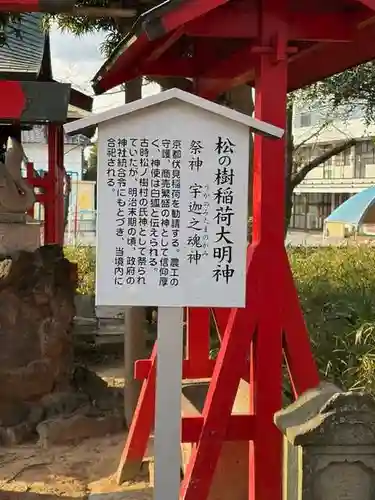 松の樹稲荷大明神
祭神　宇迦之魂神
うかのみたまのかみ
京都伏見稲荷を勧請する。農工の
守護、商売繁盛の神として信仰厚
く、神使は白狐と伝えられる。
古時松ノ樹村の氏神として祭られ
るが、明治末期の頃、政府の
神社統合令にもとづき、当境内に
合祀される。